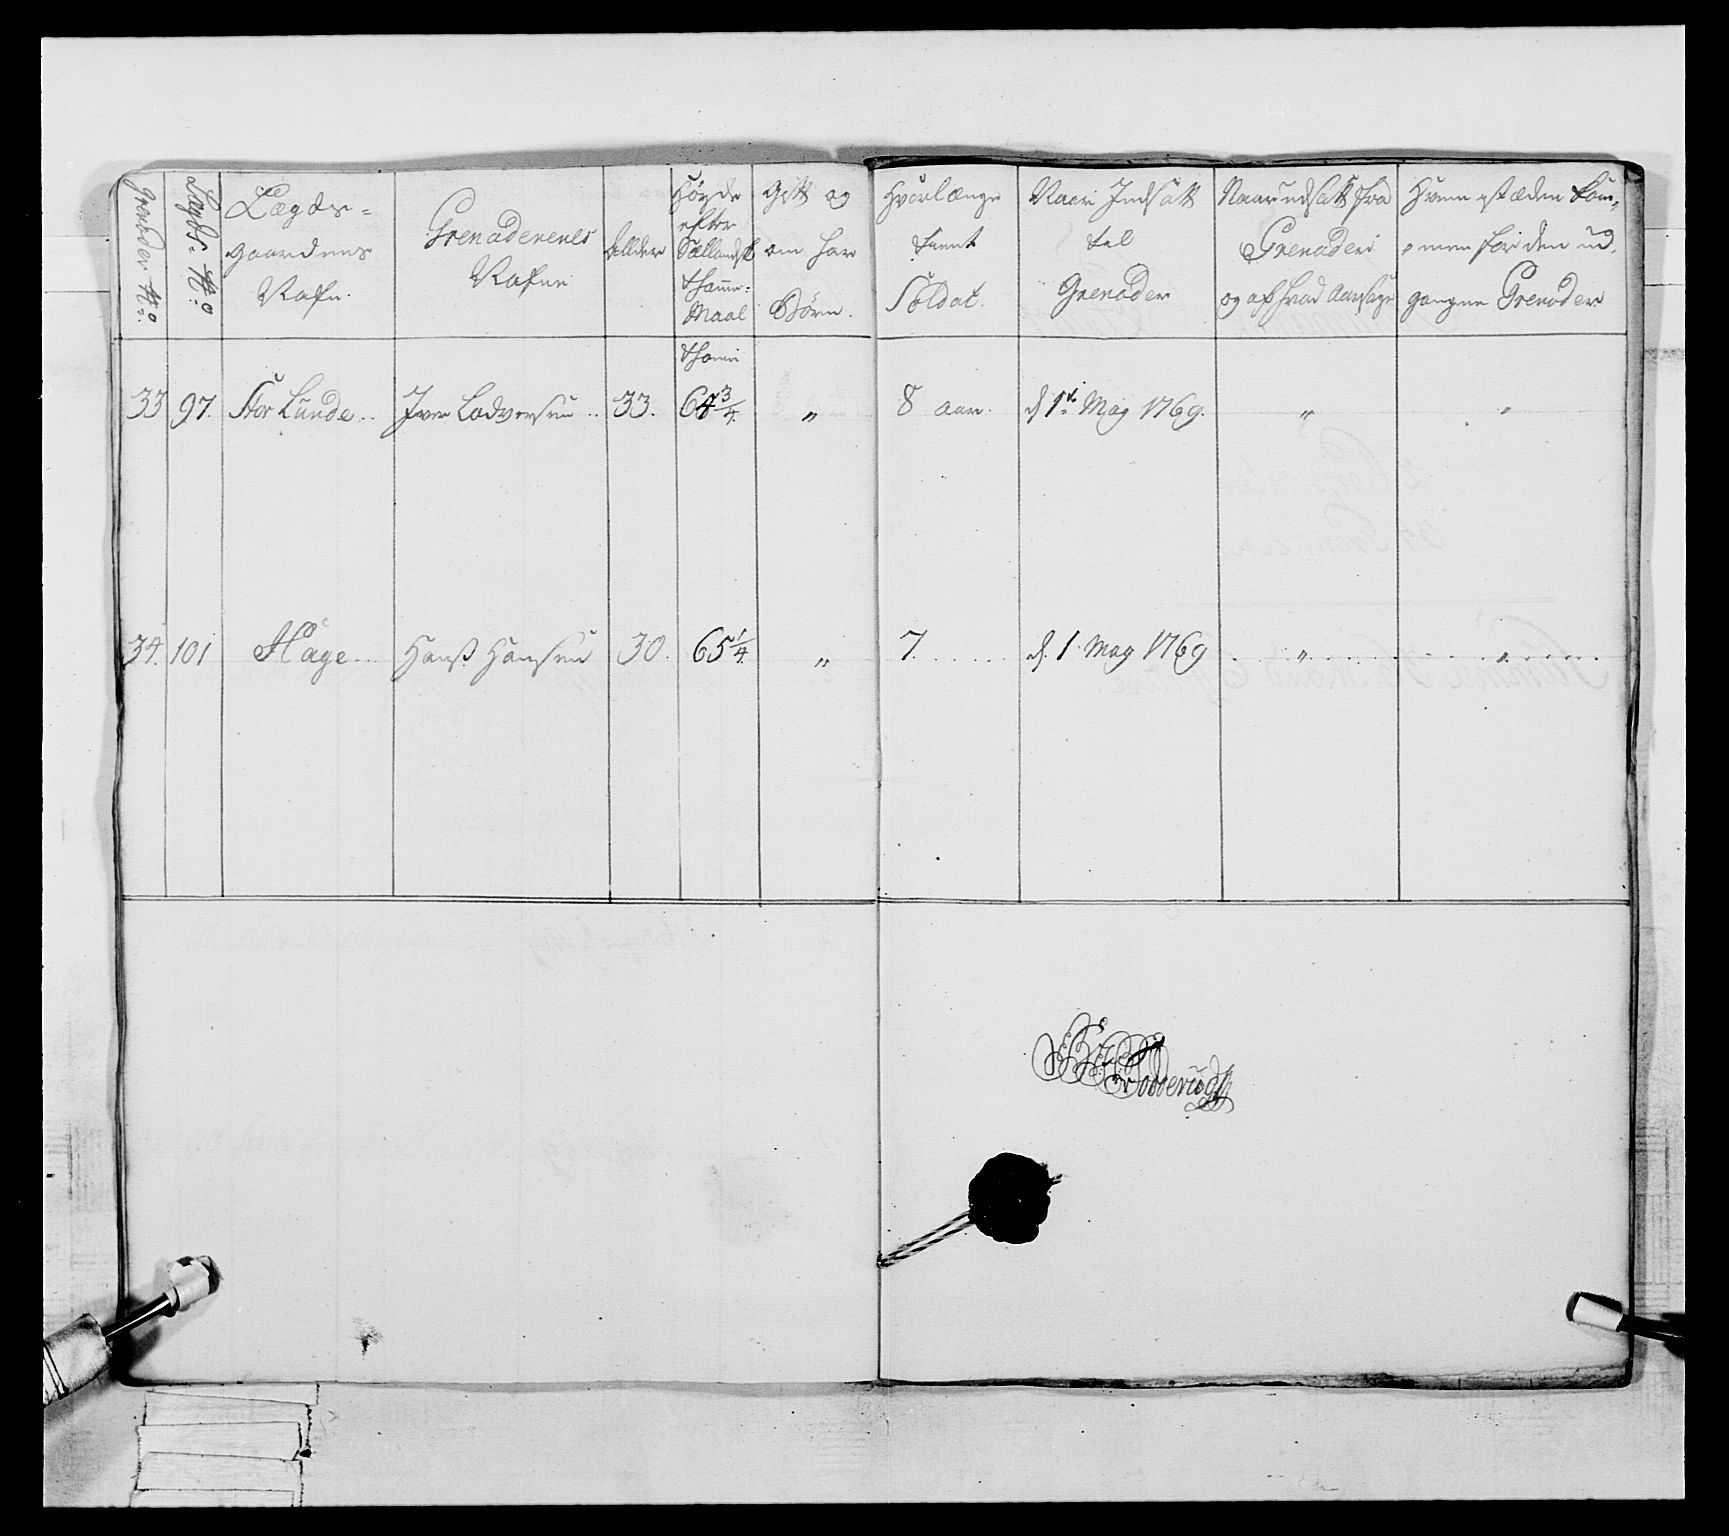 Grenader No.
Lægds- No.
Lægds-
gaardens
Nafn.
Grenaderenes
Nafne
Allder
Høyde
efter
Sællandsk
Tomme-
Maal
Gift og
om har
Børn.
Hvorlænge
tient
Soldat.
Naar Indsatt
til
Grenader
Naar udsatt fra
Grenader
og af hvad Aarsage
Hvem i stæden kom-
men for den ud-
gangne Grenader
Tomer
33 97. Stor Lunde.. Iver Ladversen .. 33. 64 3/4. " 8 aar. d 1te May 1769. " "
34. 101 Hage Hanß Hansen 30. 65 1/4. " 7. d. 1 May 1769 " "